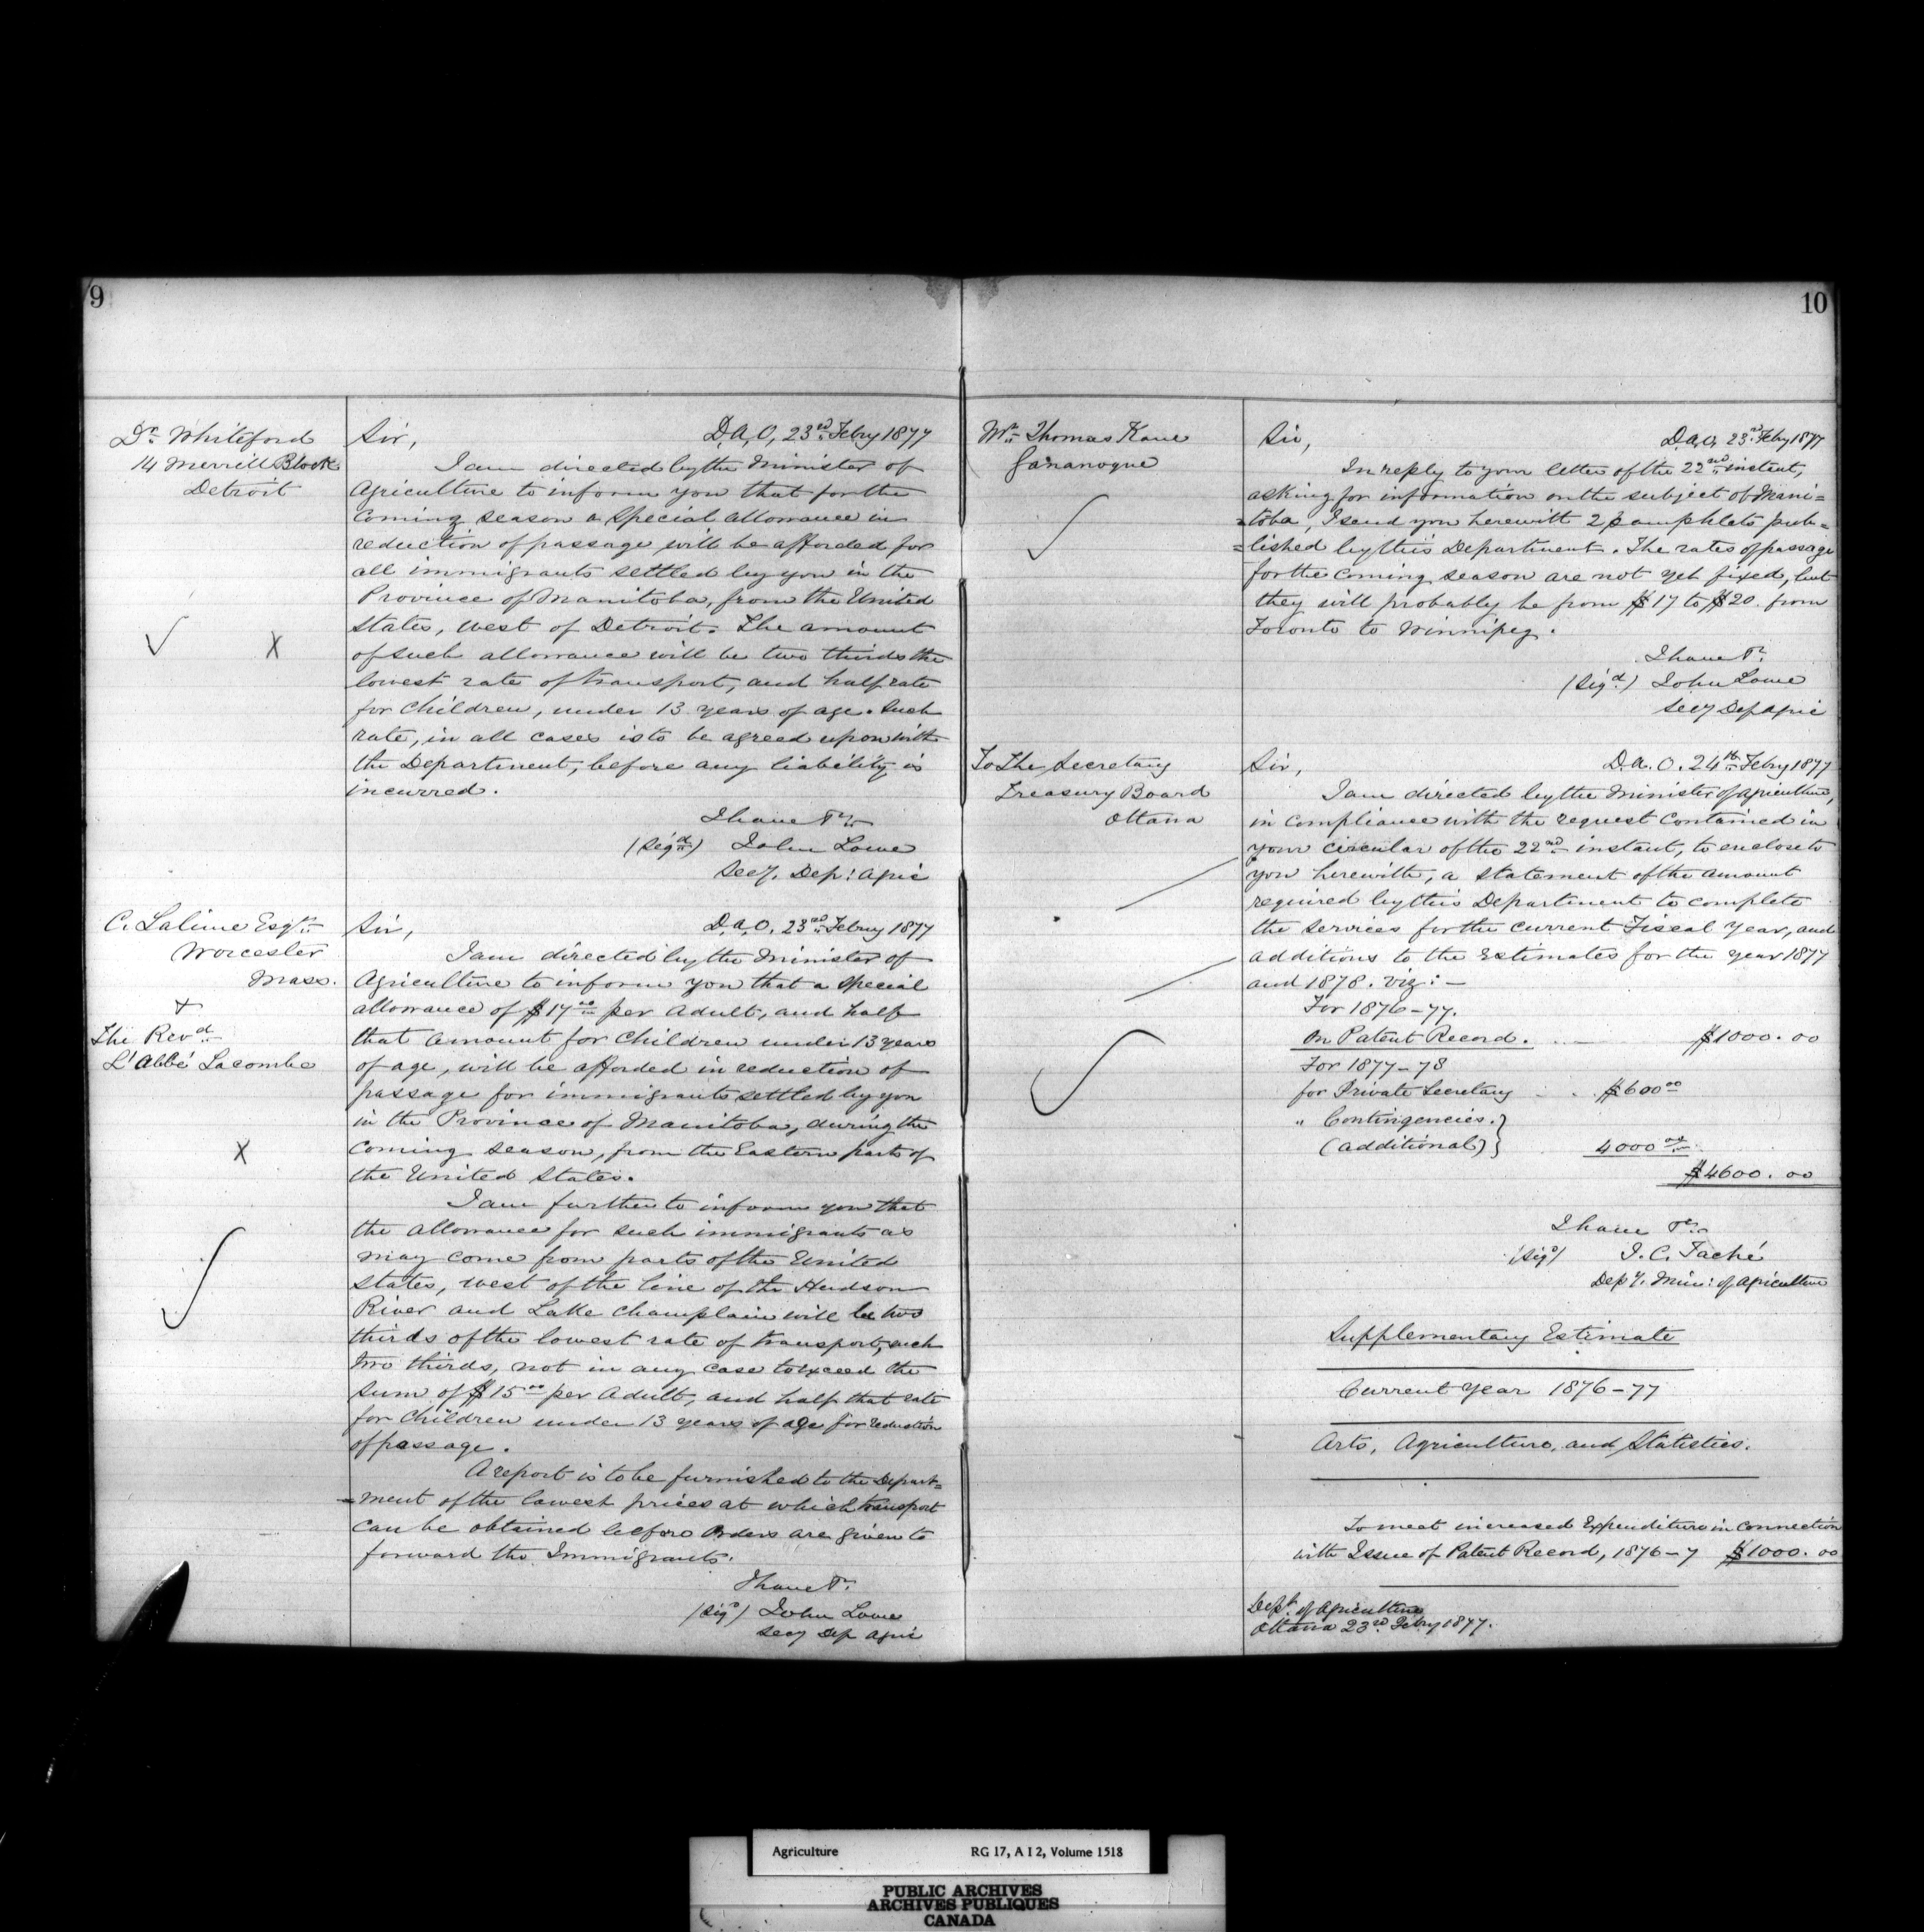 9
Dr. Whiteford
14 Merrill Block
Detroit
Sir, D.A.O, 23rd Febry 1877
I am directed by the Minister of
Agriculture to inform you that for the
coming season a special allowance in
reduction of passage will be afforded for
all immigrants settled by you in the
Province of Manitoba, from the United
States, west of Detroit. The amount
of such allowance will be two thirds the
lowest rate of transport, and half rate
for Children, under 13 years of age. Such
rate, in all cases is to be agreed upon with
the Department, before any liability is
incurred.
I have &c.
(Sigd.) John Lowe
Secy. Dep: Agric
C. Lalime Esqr.
Worcester
Mass.
+
The Revd.
L'Abbé Lacombe
Sir, D.A.O. 23rd Febry 1877
I am directed by the Minister of
Agriculture to inform you that a special
allowance of $17.00 per Adult, and half
that amount for Children under 13 years
of age, will be afforded in reduction of
passage for immigrants settled by you
in the Province of Manitoba, during the
coming season, from the Eastern part of
the United States.
I am further to inform you that
the allowance for such immigrants as
may come from parts of the United
States, west of the line of the Hudson
River and Lake Champlain will be two
thirds of the lowest rate of transport, such
two thirds, not in any case to exceed the
sum of $15.00 per Adult, and half that rate
for Children under 13 years of age for reduction
of passage.
A report is to be furnished to the Depart=
=ment of the lowest prices at which transport
can be obtained before Orders are given to
forward the Immigrants.
I have &c.
(Sigd) John Lowe
Secy Dep Agric
10
Mr. Thomas Kane
Gananoque
Sir, D.A.O. 23rd Febry 1877
In reply to your letter of the 22nd instant,
asking for information on the subject of Mani=
=toba, I send you herewith 2 pamphlets pub=
=lished by this Department. The rates of passage
for the coming season are not yet fixed, but
they will probably be from $17 to $20. from
Toronto to Winnipeg.
I have &c.
(Sigd.) John Lowe
Secy Dep Agric
To The Secretary
Treasury Board
Ottawa
Sir, D.A.O. 24th Febry 1877
I am directed by the Minister of Agriculture,
in compliance with the request contained in
your circular of the 22nd instant, to enclose to
you herewith, a statement of the amount
required by this Department to complete
the services for the current Fiscal Year, and
additions to the Estimates for the year 1877
and 1878. viz: —
For 1876-77.
On Patent Record. $1000.00
For 1877-78
for Private Secretary $600.00
" Contingencies. }
(additional) } 4000.00
$4600.00
I have &c.
(Sigd) J. C. Taché
Depy. Min: of Agriculture
Supplementary Estimate
Current Year 1876-77
Arts, Agriculture, and Statistics.
To meet increased Expenditure in connection
with Issue of Patent Record, 1876-7 $1000.00
Dept. of Agriculture
Ottawa 23rd Febry 1877.
Agriculture RG 17, A I 2, Volume 1518
PUBLIC ARCHIVES
ARCHIVES PUBLIQUES
CANADA